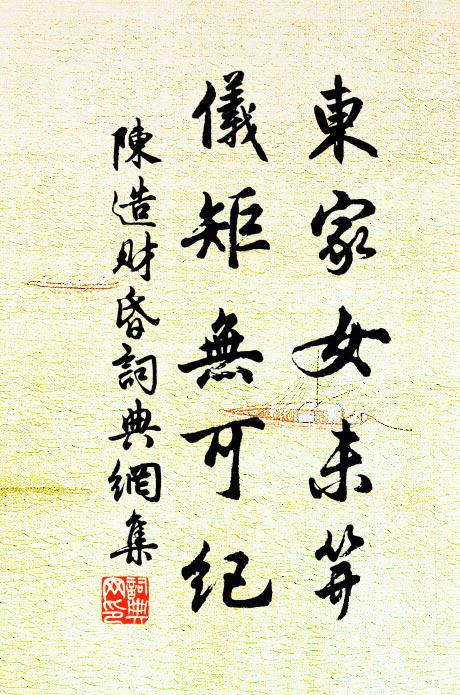 東家女未筓
儀矩無可紀
陳造財昏詞典網集
詞典网印